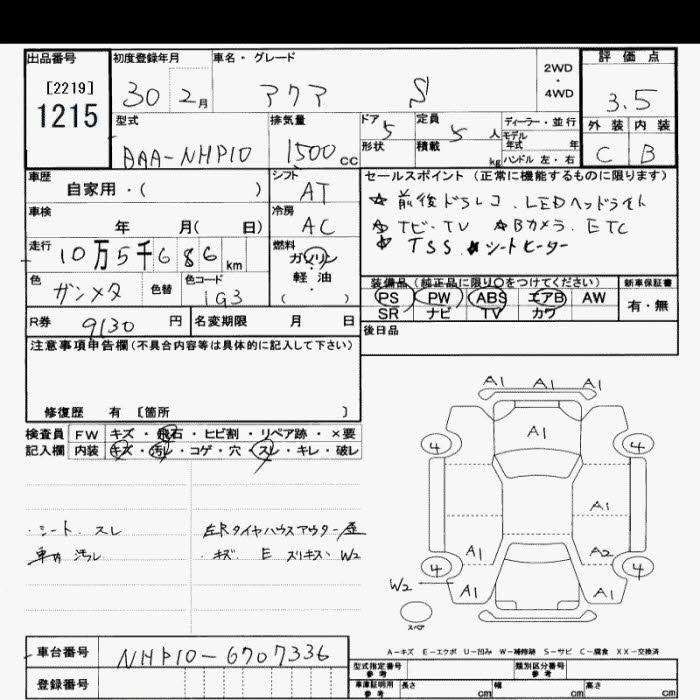 出品番号 [2219] 1215
初度登録年月 30 2月
車名・グレード アクア S
2WD・4WD
評価点 3.5
外装 C 内装 B
型式 DAA-NHP10
排気量 1500cc
ドア 5
形状
定員 5人
積載 kg
ディーラー・並行
モデル年式 年
ハンドル 左・右
車歴 自家用・( )
シフト AT
車検 年 月( 日)
冷房 AC
走行 10万5千686km
燃料 ガソリン 軽・油 ( ・ )
色 ガンメタ 色替 色コード 1G3
R券 9130円 名変期限 月 日
セールスポイント(正常に機能するものに限ります)
☆前後ドラレコ. LEDヘッドライト
☆ナビ・TV ☆Bカメラ. ETC
☆TSS ☆シートヒーター
装備品(純正品に限り○をつけてください)
PS PW ABS エアB AW
SR ナビ TV カワ
新車保証書 有・無
後日品
注意事項申告欄(不具合内容等は具体的に記入して下さい)
修復歴 有 〔箇所 〕
検査員 FW キズ・飛石・ヒビ割・リペア跡・×要
記入欄 内装 キズ・汚レ・コゲ・穴・スレ・キレ・破レ
・シート. スレ
車内 汚レ
左Rタイヤハウスアウター歪
・キズ E ズリキズ W2
A1 A1 A1
A1
4 4
A1
A1 A2
4 4
W2 A1 A1
スペア
A-キズ E-エクボ U-凹み W-補修跡 S-サビ C-腐食 XX-交換済
車台番号 NHP10-6707336
登録番号
型式指定番号 参考 類別区分番号 参考
車庫証明用 参考 長さ cm 幅 cm 高さ cm